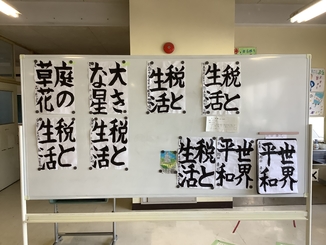 庭の
草花
大き
な星
税と
生活
税と
生活
税と
生活
税と
生活
税と
生活
世界
平和
世界
平和